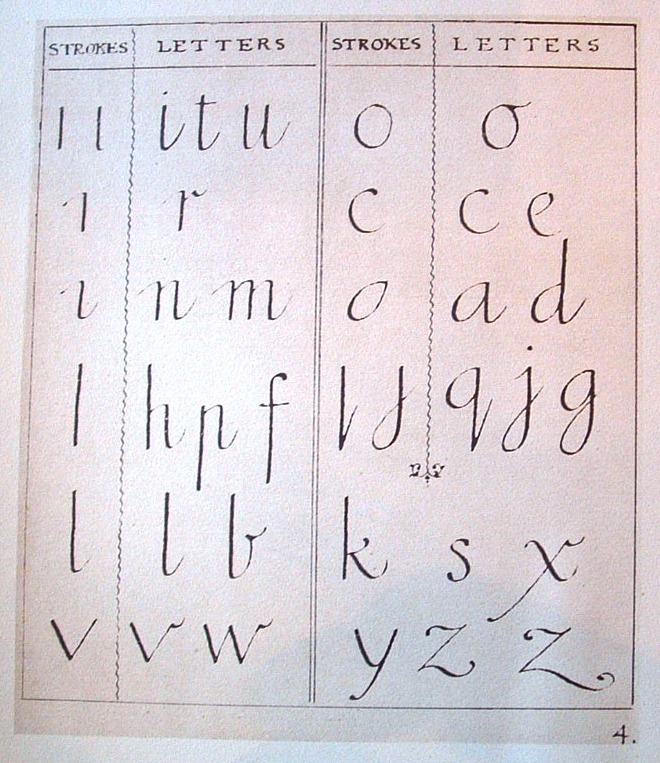 STROKES LETTERS STROKES LETTERS
ı ı i t u o o
ı r c c e
ı n m o a d
l h p f l j q j g
l l b k s x
v v w y z z
4.